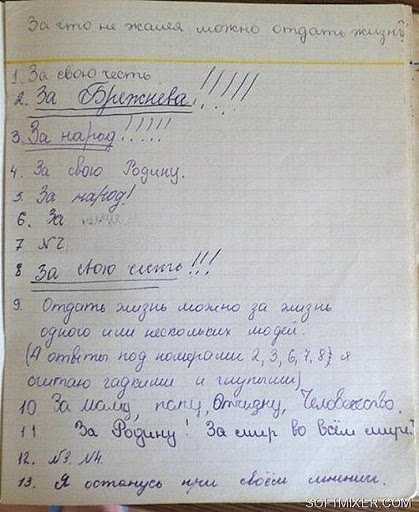 За что не жалея можно отдать жизнь?
1. За свою честь
2. За Брежнева!!!!!
3. За народ!!!!!
4. За свою Родину.
5. За народ!
6. За
7 №2.
8 За свою честь!!!
9. Отдать жизнь можно за жизнь
одного или нескольких людей.
(А ответы под номерами 2, 3, 6, 7, 8} я
считаю гадкими и глупыми)
10 За маму, папу, Отчизну, Человечество.
11 За Родину! За мир во всём мире!
12. №3. №4.
13. Я останусь при своём мнении.
SOFTMIXER.COM